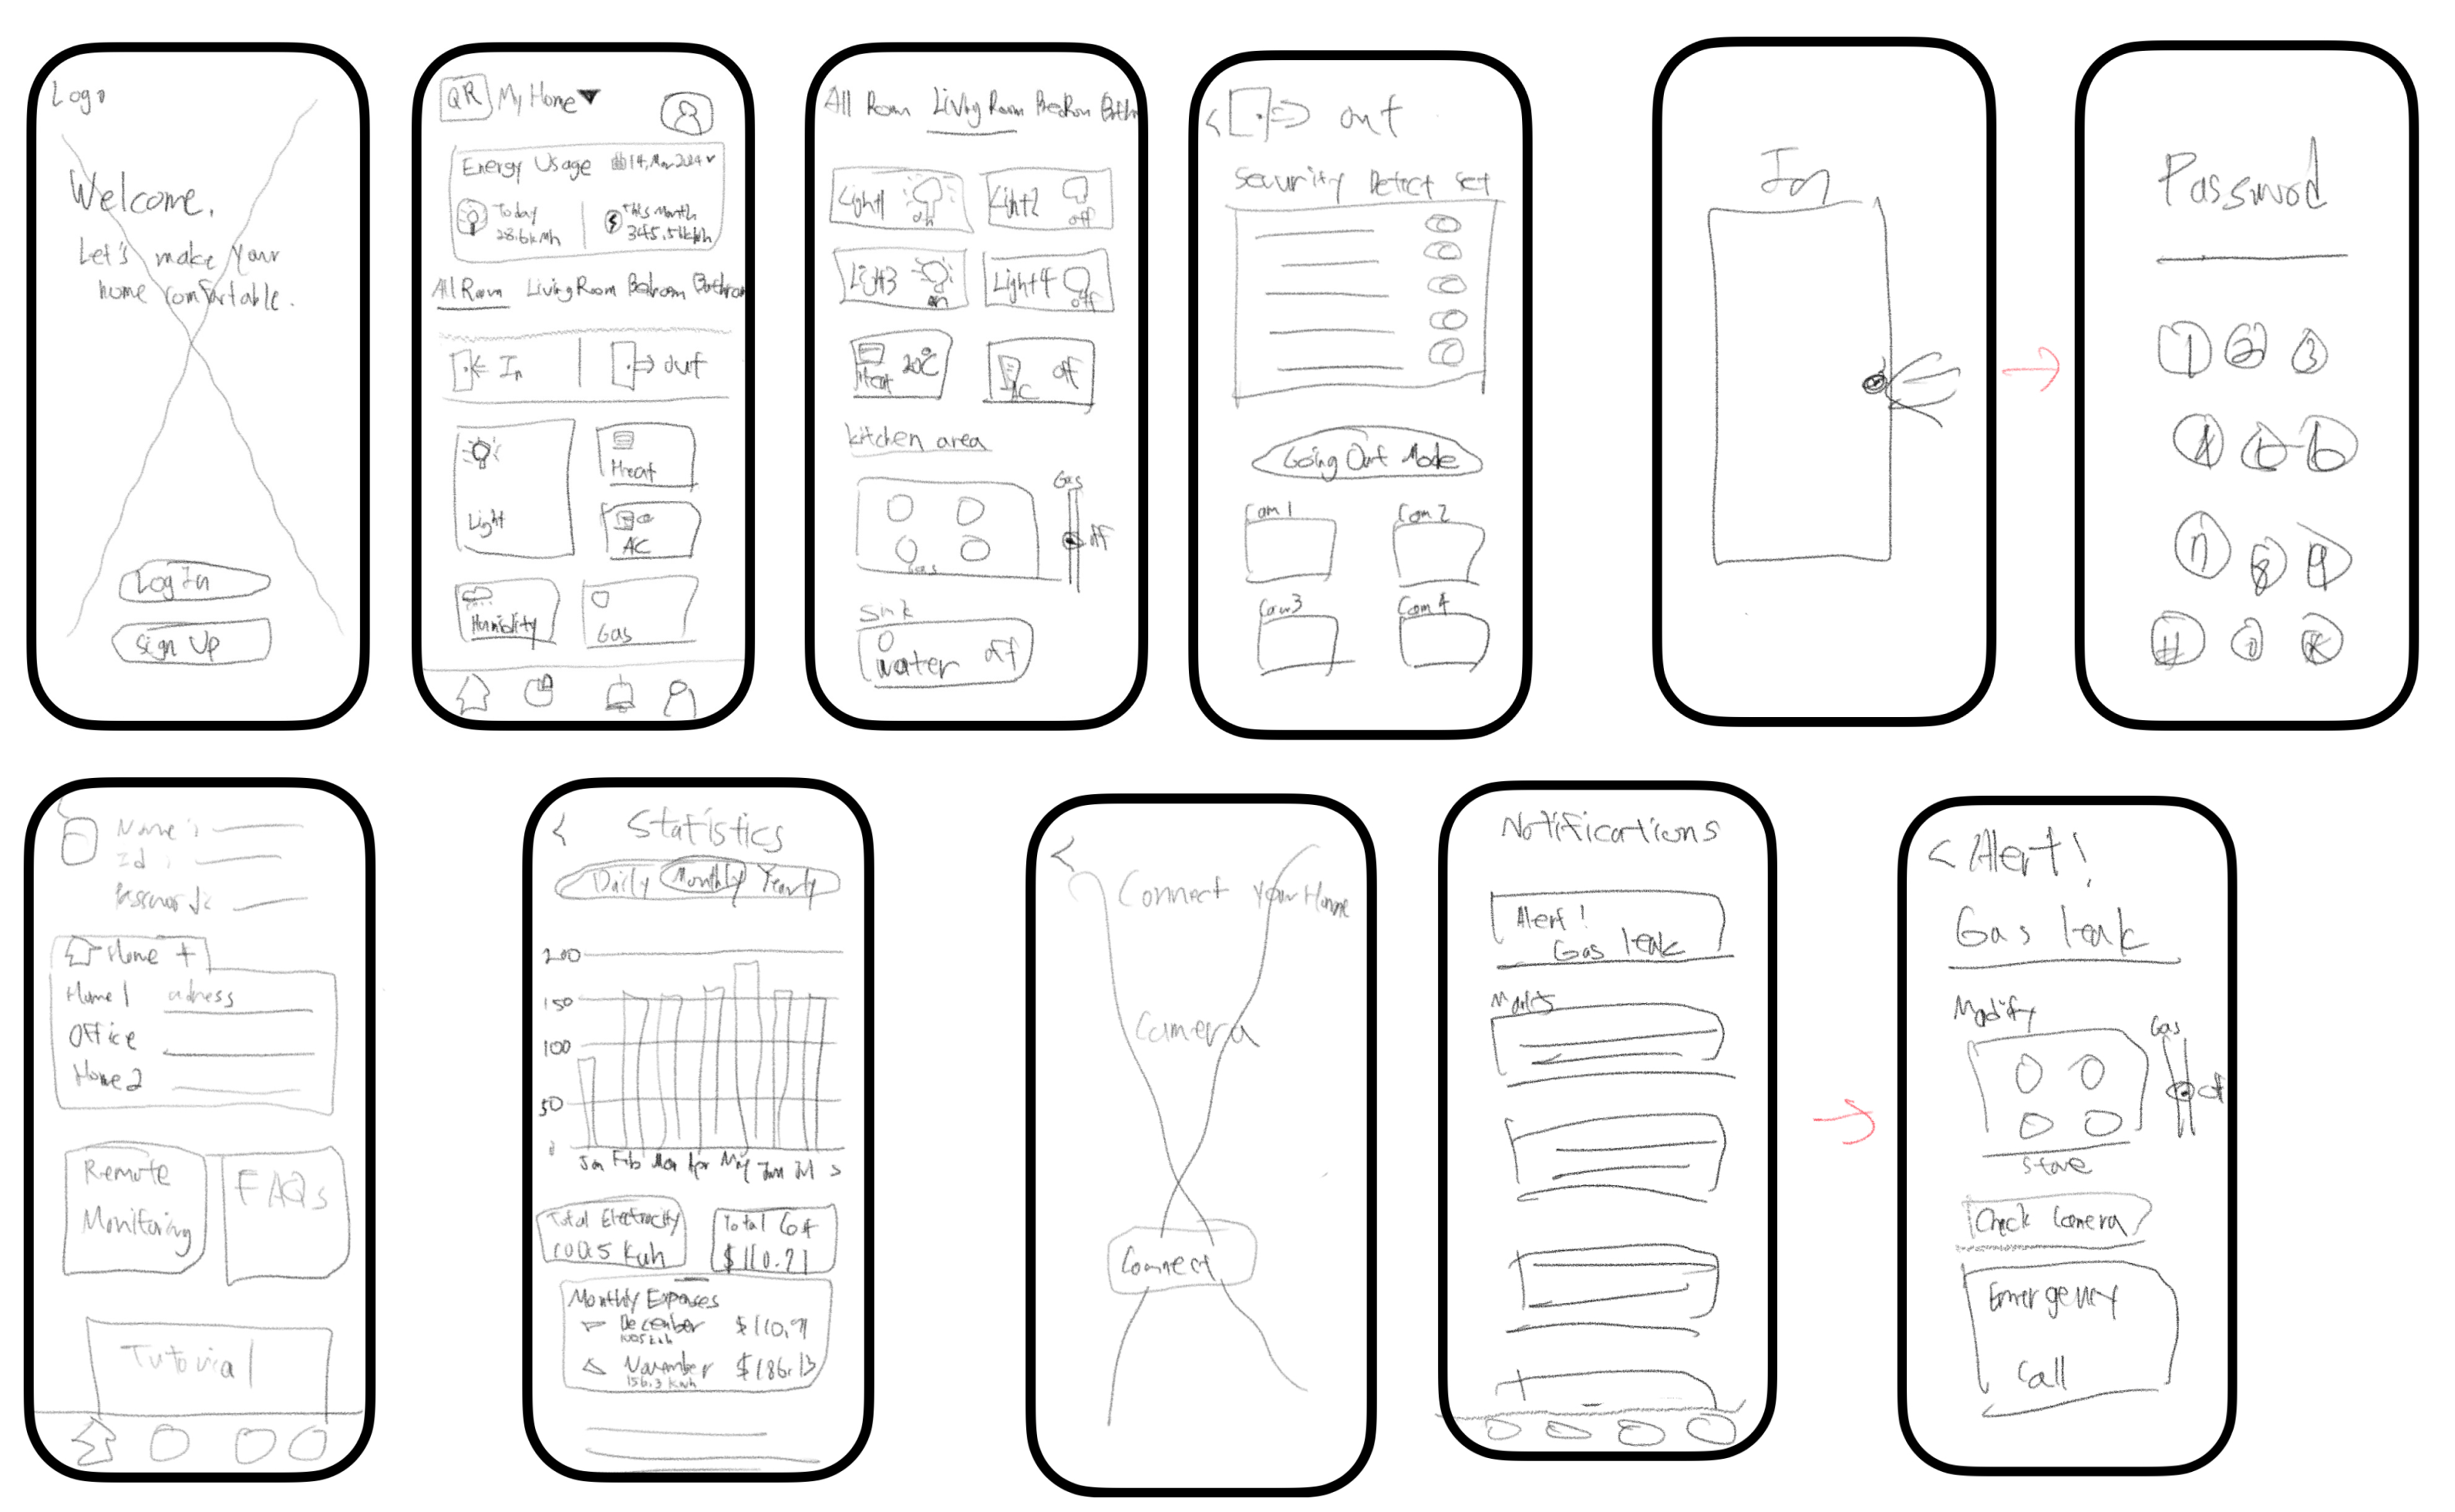 Logo
Welcome.
Let's make your
home comfortable.
Log In
Sign Up
QR My Home
Energy Usage 14, Mar 2024
Today
28.6kWh
This Month
345.51kWh
All Room Living Room Bedroom Bathroom
In out
Light
Heat
AC
Humidity
Gas
All Room Living Room Bedroom Bathr
Light1 on
Light2 off
Light3 on
Light4 off
Heat 20°C
AC off
kitchen area
Gas
off
Gas
Sink
water off
< out
Security Detect set
Going Out Mode
Cam 1
Cam 2
Cam 3
Cam 4
In
Password
1 2 3
4 5 6
7 8 9
# 0 *
Name:
Id:
Password:
Home +
Home 1 adress
Office
Home 2
Remote
Monitoring
FAQs
Tutorial
< Statistics
Daily Monthly Yearly
200
150
100
50
0
Jan Feb Mar Apr May Jun Jul S
Total Electricity
Total Cost
$110.21
Monthly Expenses
December
November
156.3 kwh
$186.13
<
Connect your Home
Camera
Connect
Notifications
Alert!
Gas leak
< Alert!
Gas leak
Modify
Gas
off
stove
Check Camera
Emergency
Call